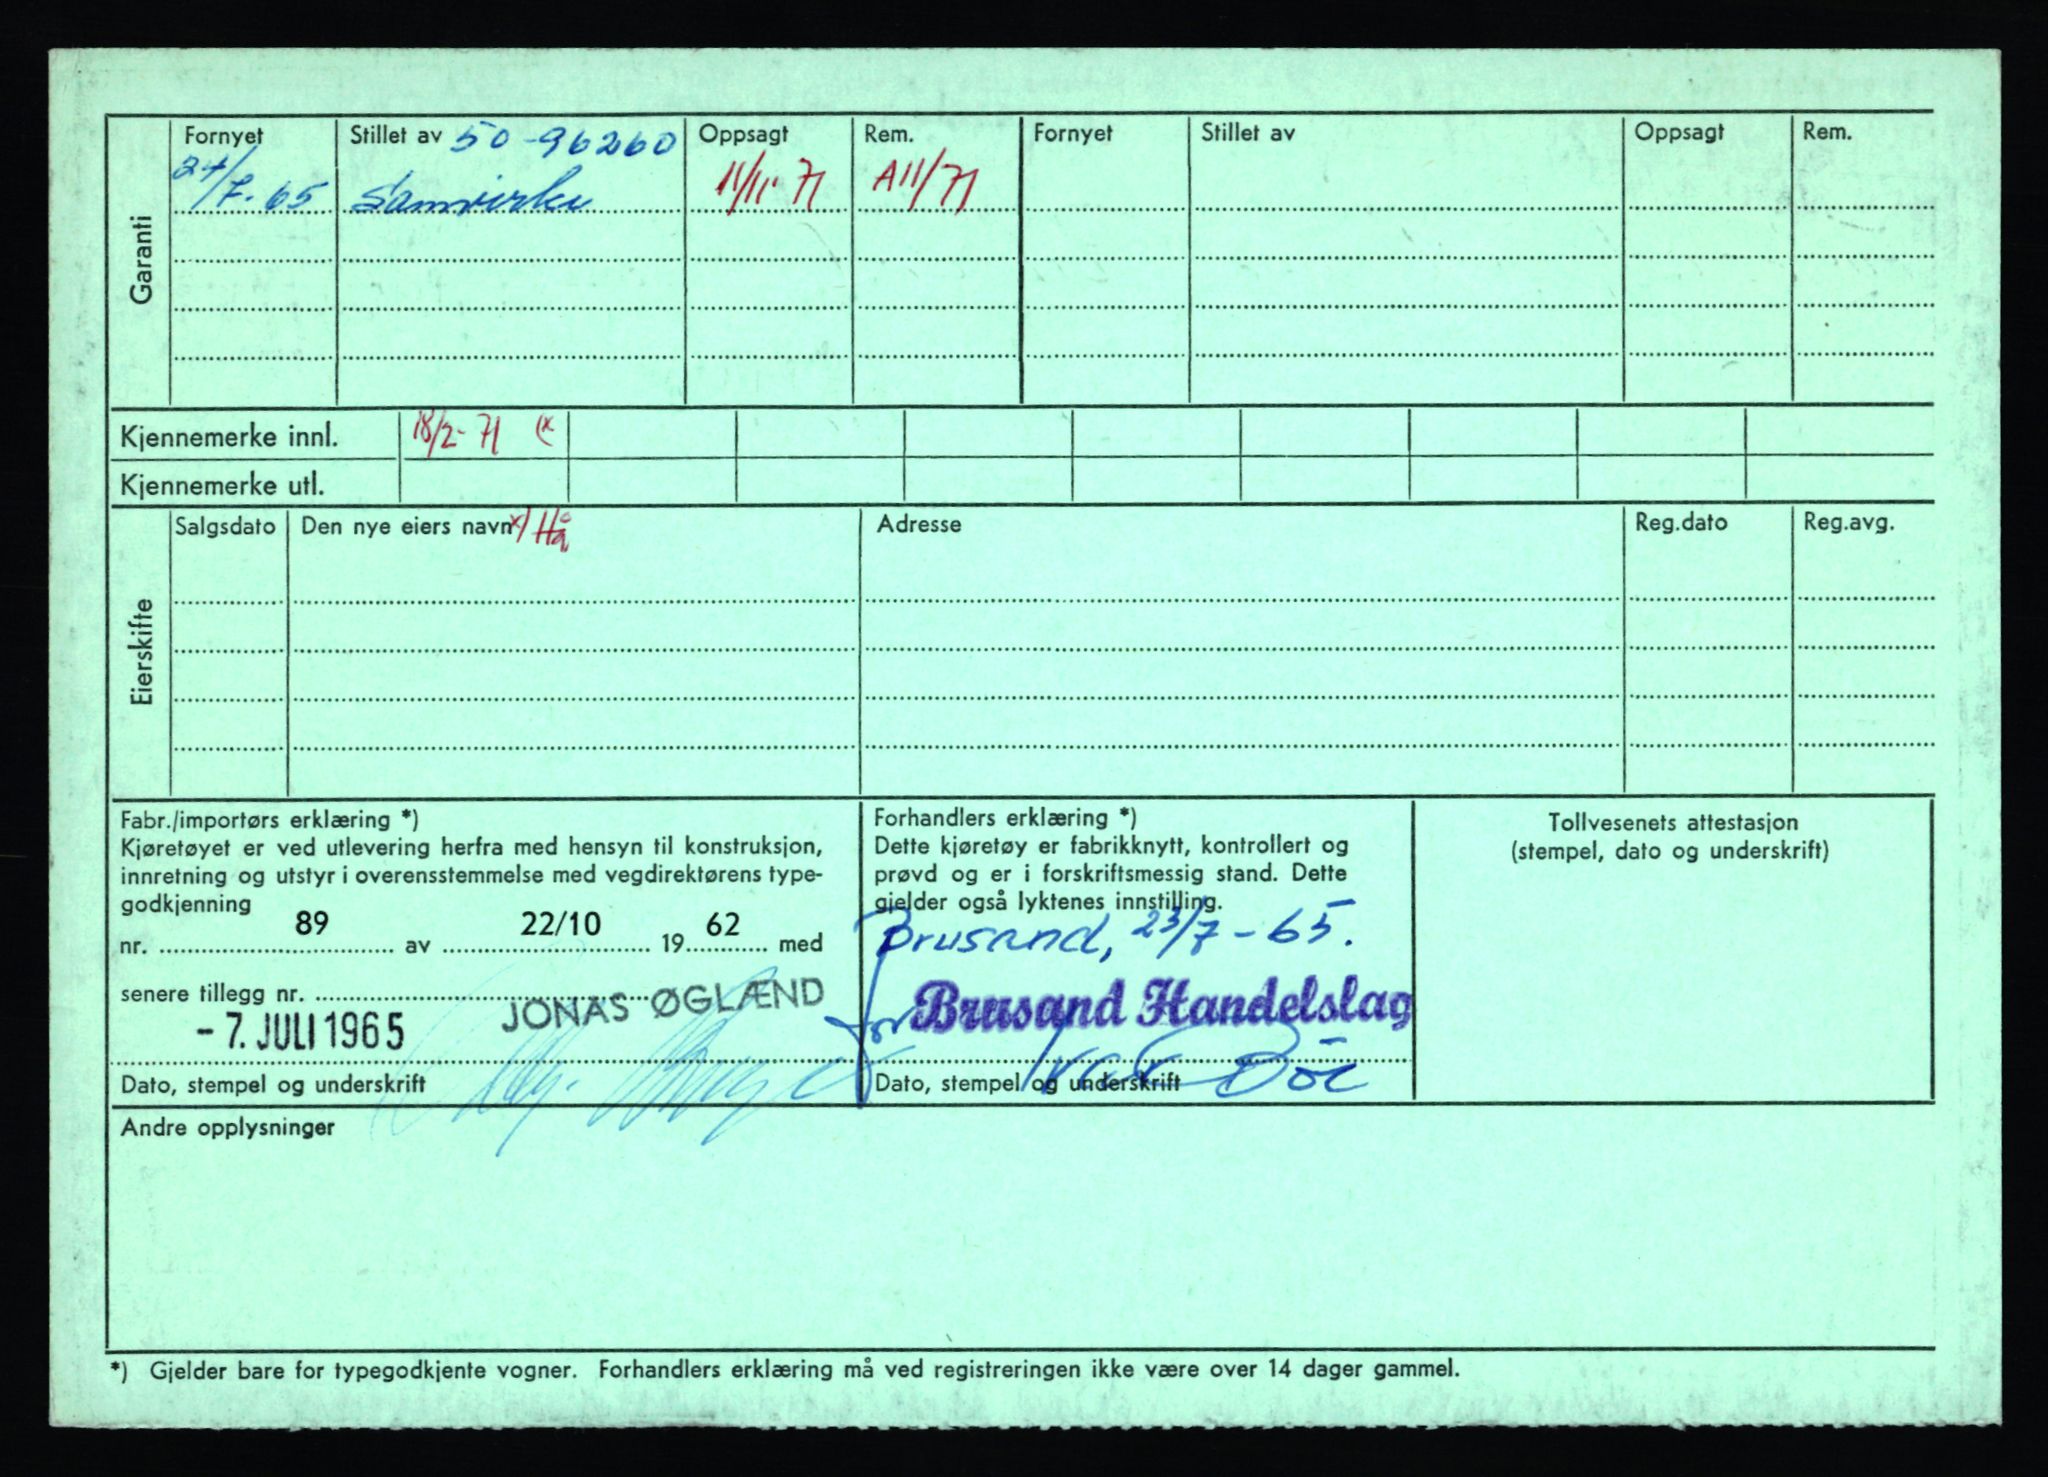 Garanti
Fornyet Stillet av 50-96260 Oppsagt Rem. Fornyet Stillet av Oppsagt Rem.
24/7-65 Samvirke 11/11 71 A11/71
Kjennemerke innl. 18/2-71 (x
Kjennemerke utl.
Eierskifte
Salgsdato Den nye eiers navn x/ Hå Adresse Reg.dato Reg.avg.
Fabr./importørs erklæring *)
Kjøretøyet er ved utlevering herfra med hensyn til konstruksjon,
innretning og utstyr i overensstemmelse med vegdirektørens type-
godkjenning
nr. 89 av 22/10 1962 med
senere tillegg nr.
JONAS ØGLÆND
-7. JULI 1965
Dato, stempel og underskrift
Forhandlers erklæring *)
Dette kjøretøy er fabrikknytt, kontrollert og
prøvd og er i forskriftsmessig stand. Dette
gjelder også lyktenes innstilling.
Brusand, 23/7-65.
for Brusand Handelslag
Dato, stempel og underskrift
Tollvesenets attestasjon
(stempel, dato og underskrift)
Andre opplysninger
*) Gjelder bare for typegodkjente vogner. Forhandlers erklæring må ved registreringen ikke være over 14 dager gammel.